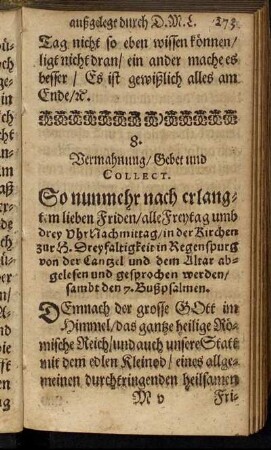 außgelegt durch D. M. L. 275
Tag nicht so eben wissen können/
ligt nicht dran/ ein ander mache es
besser/ Es ist gewißlich alles am
Ende/ ꝛc.
8.
Vermahnung/ Gebet und
COLLECT.
So nunmehr nach erlang-
tem lieben Friden/ alle Freytag umb
drey Vhr Nachmittag/ in der Kirchen
zur H. Dreyfaltigkeit in Regenspurg
von der Cantzel und dem Altar ab-
gelesen und gesprochen werden/
sambt den 7. Bußpsalmen.
DEmnach der grosse GOtt im
Himmel/ das gantze heilige Rö-
mische Reich/ und auch unsere Statt
mit dem edlen Kleinod/ eines allge-
meinen durchtringenden heilsamen
M v Fri-